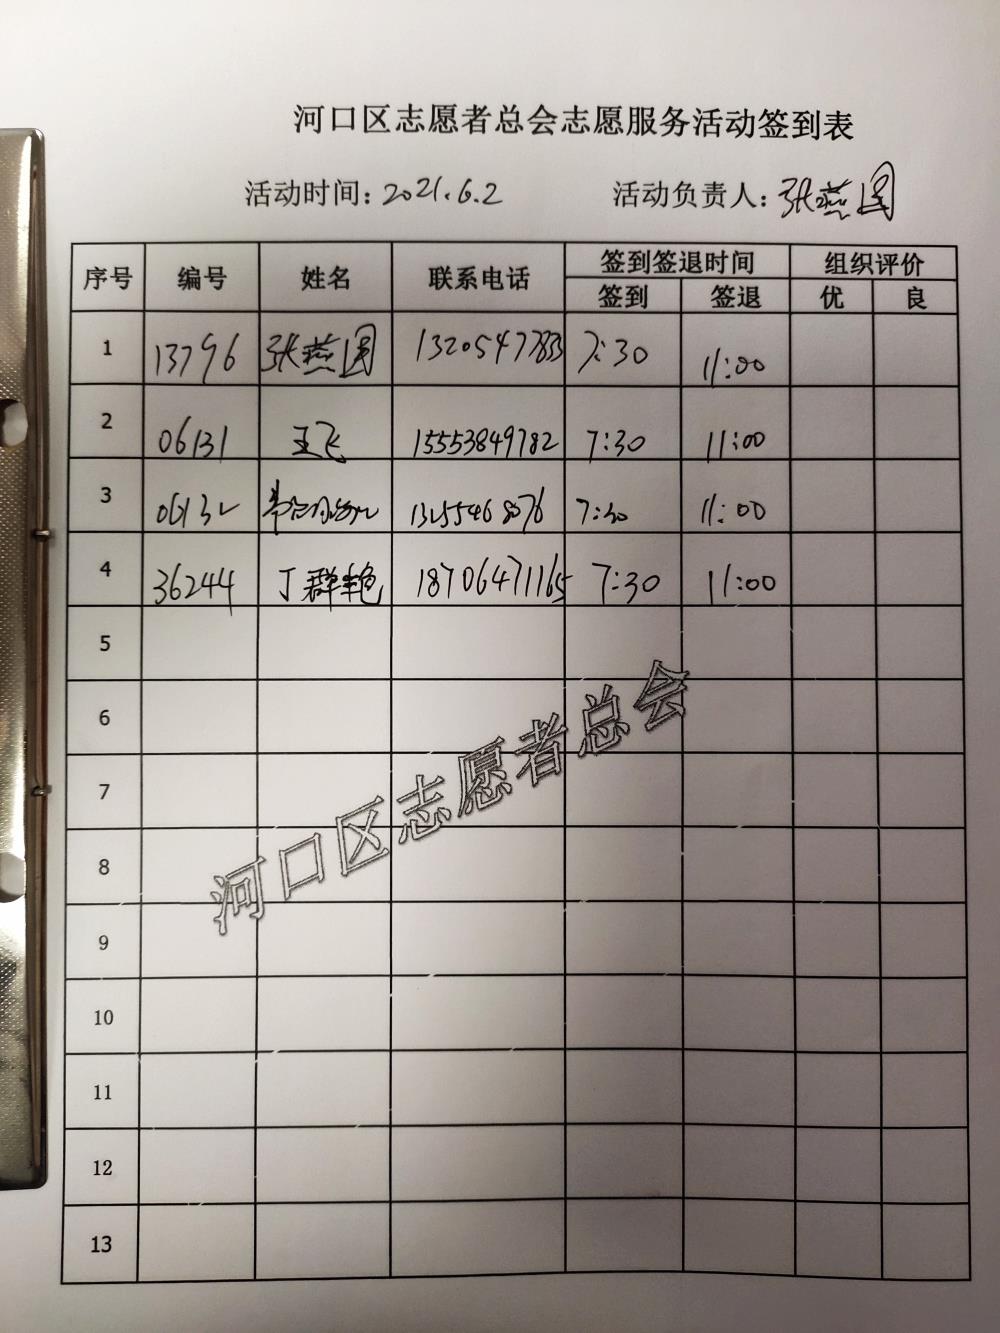 河口区志愿者总会志愿服务活动签到表
活动时间：2021.6.2 活动负责人：张燕图
序号 编号 姓名 联系电话 签到签退时间 组织评价
签到 签退 优 良
1 13796 张燕图 13205477833 7:30 11:00
2 06131 王飞 15553849782 7:30 11:00
3 06132 7:30 11:00
4 36244 丁群艳 18706471165 7:30 11:00
5
6
7
8
9
10
11
12
13
河口区志愿者总会